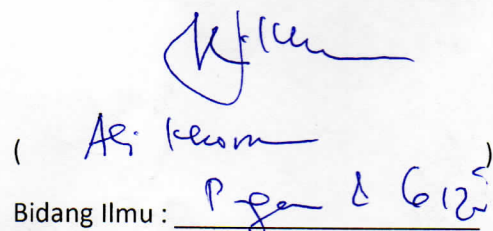 ( Ali Khom )
Bidang Ilmu : Pangan & Gizi